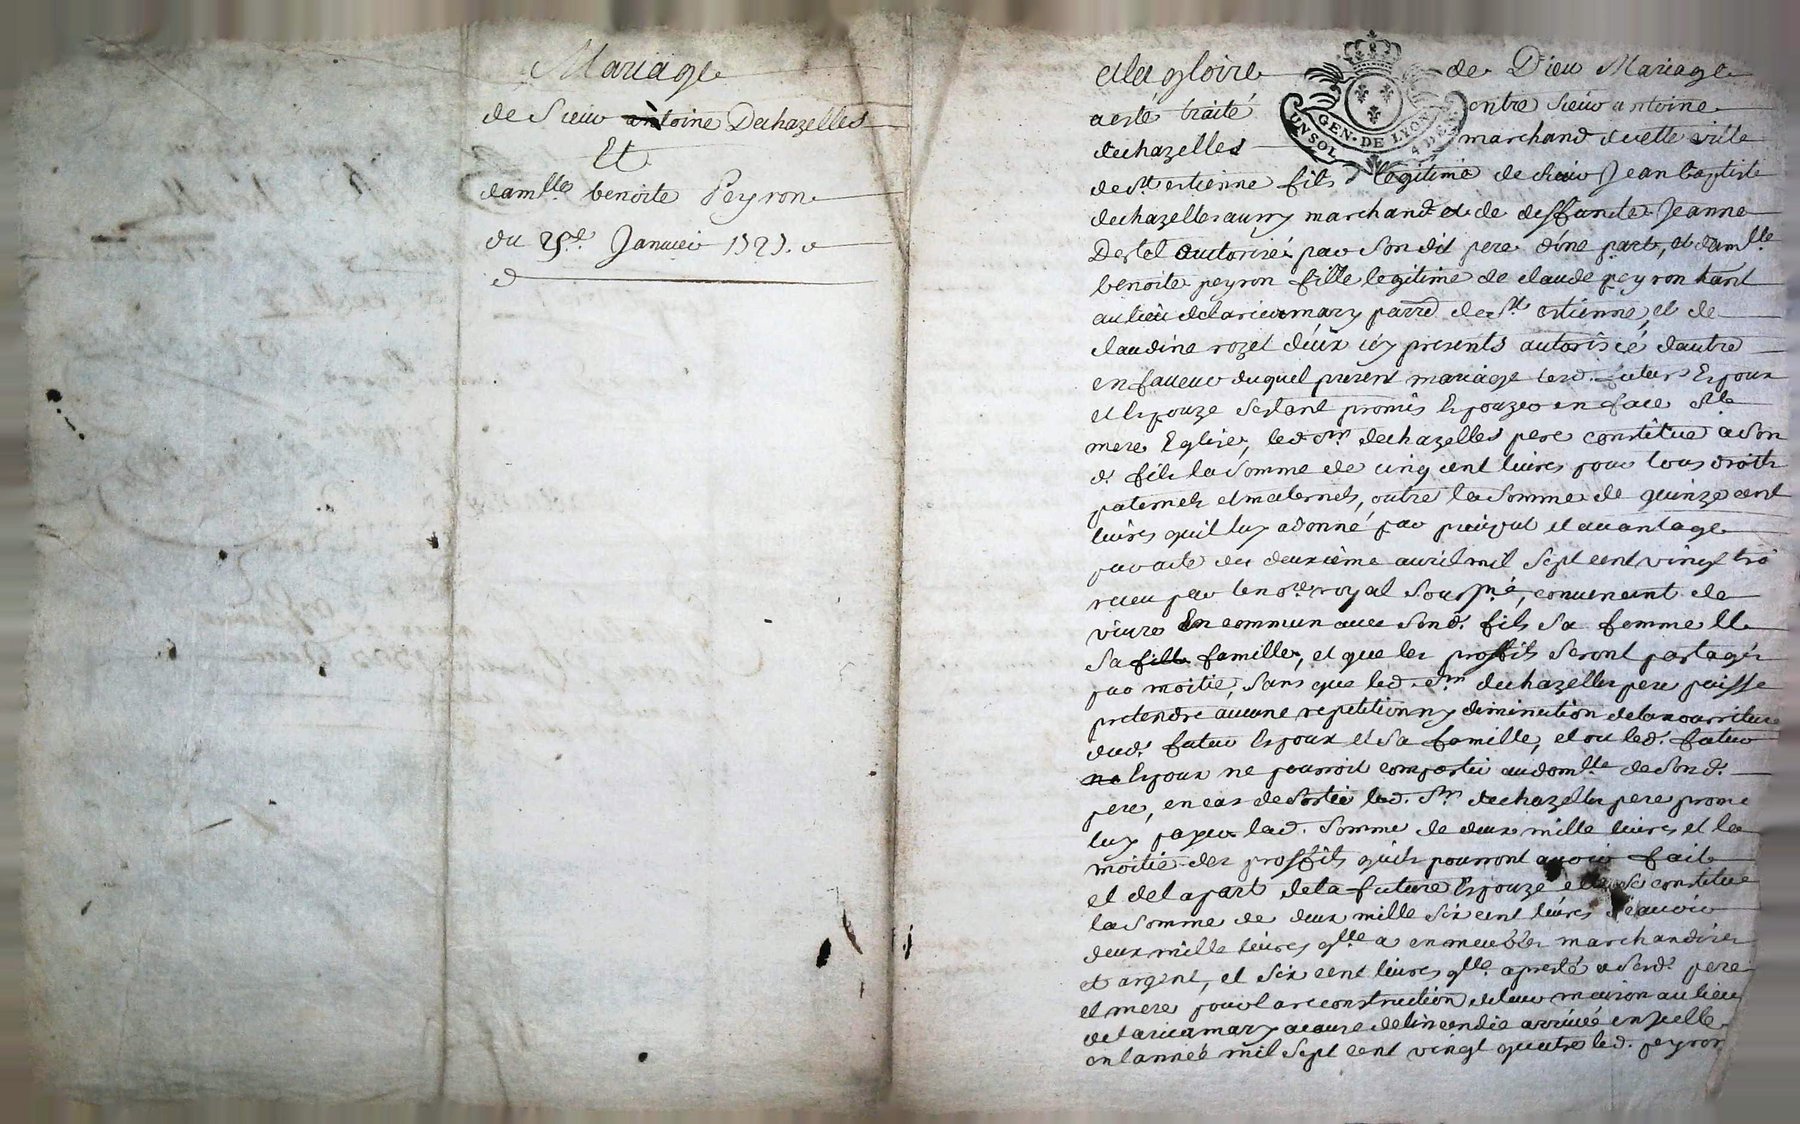 Mariage
de Sieur antoine Dechazelles
Et
damlle benoite Peyron
du 25e Janvier 1727.
a la gloire de Dieu Mariage
GEN·DE LYON
UN SOL 4 DEN
a esté traité entre sieur antoine
dechazelles marchand de cette ville
de st estienne fils legitime de sieur Jean baptiste
dechazelles aussy marchand et de deffunte Jeanne
autorisé par son dit pere d'une part, et damlle
benoite peyron fille legitime de claude peyron hant
au lieu de la ricamary parre de st estienne, et de
claudine rozet d'eux icy presents autorisée dautre
en faveur duquel present mariage lesd. futurs Epoux
et Epouze s'estant promis Epouzer en face ste
mere Eglise, led sr dechazelles pere constitue a son
d. fils la somme de cinq cent livres pour tous droits
paternels et maternels, outre la somme de quinze cent
livres qu'il luy a donné par preciput et avantage
par acte du deuxième avril mil sept cent vingt troi
receu par le nore royal soussné, convenant de
vivre En commun avec sond. fils sa femme et
sa fille famille, et que les proffits seront partagés
par moitié, sans que led. sr dechazelles pere puisse
pretendre aucune repetition ny diminution de la nourriture
dud. futur Epoux et sa famille, et ou led. futur
ne Epoux ne pourroit compatir au domlle de sond.
pere, en cas de sortie led. sr dechazelles pere prome
luy payer lad. somme de deux mille livres et la
moitié des proffits qu'ils pourront avoir fait
et de la part de la future Epouze elle se constitue
la somme de deux mille six cent livres scavoir
deux mille livres qlle a en meubles marchandises
et argent, et six cent livres qlle a presté a sesd. pere
et mere pour la reconstruction de leur maison au lieu
de la ricamary a cause de l'incendie arrivée en Icelle
en l'année mil sept cent vingt quatre led. peyron